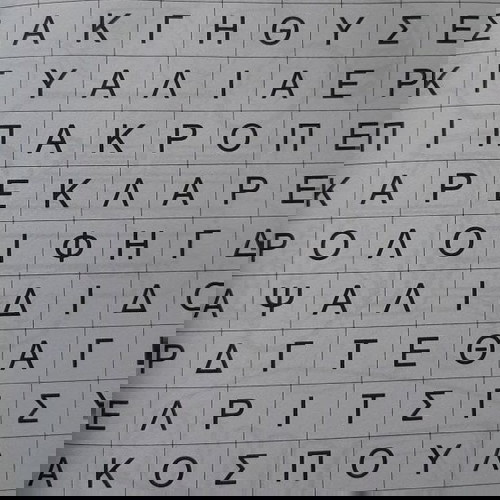 Α Κ Γ Η Θ Υ Σ Ε Σ
Υ Α Λ Ι Α Ε Ρ Κ Ι
Τ Α Κ Ρ Ο Π Ε Π Ι Ι
Ε Κ Λ Α Ρ Ε Κ Α Ρ
Ι Φ Η Γ Δ Ρ Ο Λ Ο
Δ Ι Δ Ϛ Α Ψ Α Λ Ι
Α Γ Ρ Δ Γ Γ Ε Θ
Σ Ε Λ Ρ Ι Τ Σ Ι
Α Κ Ο Σ Π Ο Υ Λ